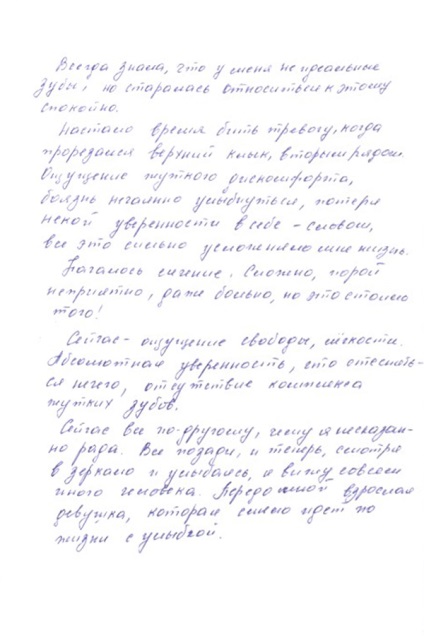 Всегда знала, что у меня не идеальные
зубы, но старалась относиться к этому
спокойно.
Настало время бить тревогу, когда
прорезался верхний клык, вторым рядом.
Ощущение жуткого дискомфорта,
боязнь нечаянно улыбнуться, потеря
некой уверенности в себе - словом,
все это сильно усложняло мне жизнь.
Началось лечение. Сложно, порой
неприятно, даже больно, но это стоило
того!
Сейчас - ощущение свободы, лёгкости.
Абсолютная уверенность, что стеснять-
ся нечего, отсутствие комплекса
жутких зубов.
Сейчас все по-другому, чему я несказан-
но рада. Все позади, и теперь, смотря
в зеркало и улыбаясь, я вижу совсем
иного человека. Передо мной взрослая
девушка, которая смело идет по
жизни с улыбкой.